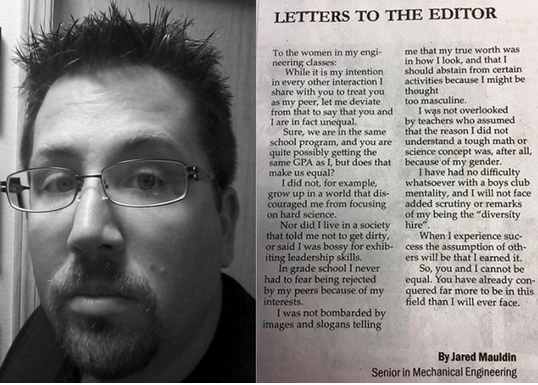 LETTERS TO THE EDITOR
To the women in my engi-
neering classes:
While it is my intention
in every other interaction I
share with you to treat you
as my peer, let me deviate
from that to say that you and
I are in fact unequal.
Sure, we are in the same
school program, and you are
quite possibly getting the
same GPA as I, but does that
make us equal?
I did not, for example,
grow up in a world that dis-
couraged me from focusing
on hard science.
Nor did I live in a society
that told me not to get dirty,
or said I was bossy for exhib-
iting leadership skills.
In grade school I never
had to fear being rejected
by my peers because of my
interests.
I was not bombarded by
images and slogans telling
me that my true worth was
in how I look, and that I
should abstain from certain
activities because I might be
thought
too masculine.
I was not overlooked
by teachers who assumed
that the reason I did not
understand a tough math or
science concept was, after all,
because of my gender.
I have had no difficulty
whatsoever with a boys club
mentality, and I will not face
added scrutiny or remarks
of my being the "diversity
hire".
When I experience suc-
cess the assumption of oth-
ers will be that I earned it.
So, you and I cannot be
equal. You have already con-
quered far more to be in this
field than I will ever face.
By Jared Mauldin
Senior in Mechanical Engineering